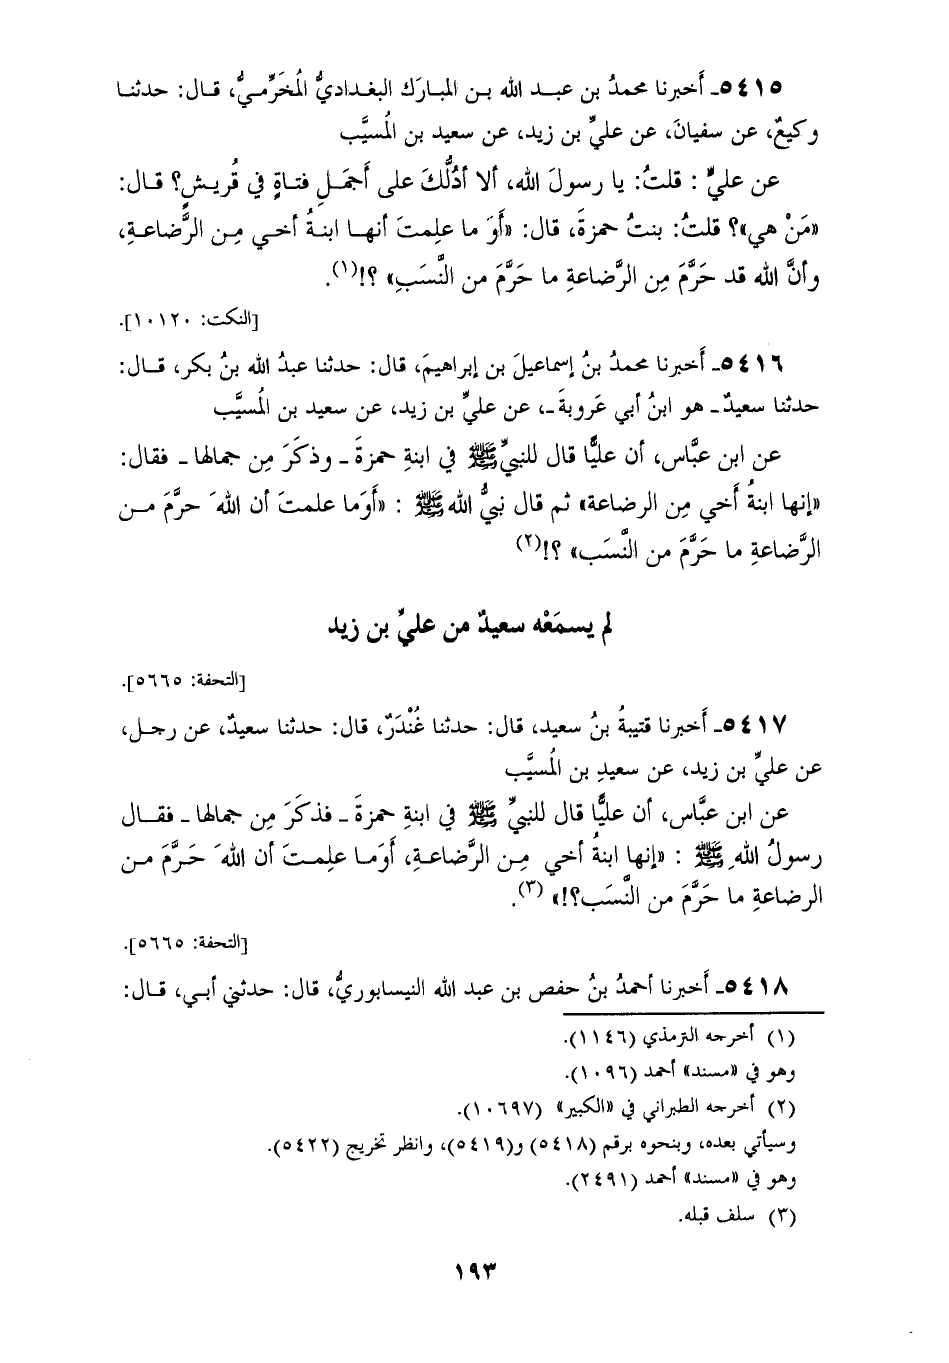 ٥٤١٥ـ أَخبرنا محمدُ بن عبـد الله بـن المبارَك البغـداديُّ المُخَرِّمـيُّ، قـال: حدثنـا
وكيعٌ، عن سفيانَ، عن عليِّ بن زيد، عن سعيد بن المُسيَّب
عن عليٍّ : قلتُ: يا رسولَ الله، ألا أدُلُّكَ على أَجمَلِ فتـاةٍ في قُريـشٍ؟ قـال:
«مَنْ هي»؟ قلتُ: بنتُ حمزةَ، قال: «أَوَ ما علِمتَ أنهـا ابنـةُ أخـي مِـن الرَّضاعـةِ،
وأنَّ الله قد حَرَّمَ مِن الرَّضاعةِ ما حَرَّمَ من النَّسَبِ» ؟!(١).
[النكت: ١٠١٢٠].
٥٤١٦ـ أَخبرنا محمدُ بنُ إسماعيلَ بن إبراهيمَ، قال: حدثنا عبدُ الله بنُ بكر، قـال:
حدثنا سعيدٌ ـ هو ابنُ أبي عَروبةَ ـ، عن عليِّ بن زيد، عن سعيد بن المُسيَّب
عن ابن عبَّاس، أن عليًّا قال للنبيِّ ﷺ في ابنةِ حمزةَ ـ وذكَرَ مِن جمالها ـ فقال:
«إنها ابنةُ أخي مِن الرضاعة» ثم قال نبيُّ الله ﷺ : «أَوَما علمتَ أن اللهَ حرَّمَ مـن
الرَّضاعةِ ما حَرَّمَ من النَّسَب» ؟!(٢)
لم يسمَعْه سعيدٌ من عليِّ بن زيد
[التحفة: ٥٦٦٥].
٥٤١٧ـ أَخبرنا قتيبةُ بنُ سعيد، قال: حدثنا غُنْدَرٌ، قال: حدثنا سعيدٌ، عن رجـل،
عن عليِّ بن زيد، عن سعيدِ بن المُسيَّب
عن ابن عبَّاس، أن عليًّا قال للنبيِّ ﷺ في ابنةِ حمزةَ ـ فذكَرَ مِن جمالها ـ فقـال
رسولُ اللهِ ﷺ : «إنها ابنةُ أخي مِـن الرَّضاعـةِ، أَوَمـا علِمـتَ أن اللهَ حَـرَّمَ مـن
الرضاعةِ ما حَرَّمَ من النَّسَب؟!» (٣).
[التحفة: ٥٦٦٥].
٥٤١٨ـ أَخبرنا أحمدُ بنُ حفص بن عبد الله النيسابوريُّ، قال: حدثني أبي، قـال:
(١) أخرجه الترمذي (١١٤٦).
وهو في «مسند» أحمد (١٠٩٦).
(٢) أخرجه الطبراني في «الكبير» (١٠٦٩٧).
وسيأتي بعده، وبنحوه برقم (٥٤١٨) و(٥٤١٩)، وانظر تخريج (٥٤٢٢).
وهو في «مسند» أحمد (٢٤٩١).
(٣) سلف قبله.
١٩٣